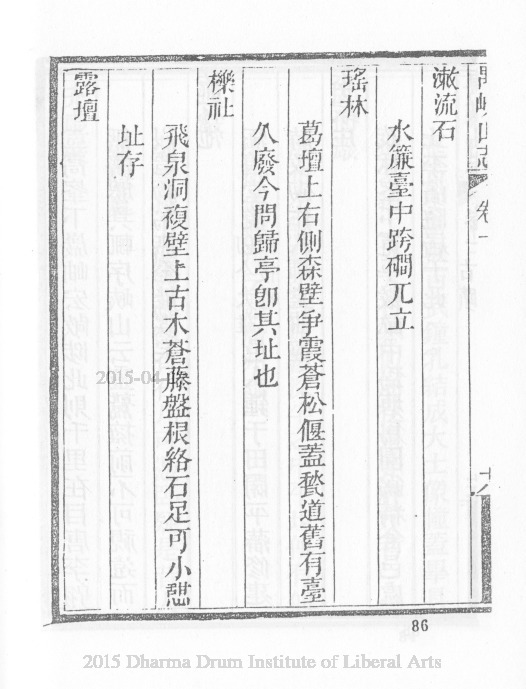 禺峽山志 卷一
漱流石
水簾臺中跨磵兀立
瑤林
葛壇上右側森壁爭霞蒼松偃蓋甃道舊有臺
久廢今問歸亭卽其址也
櫟社
飛泉洞複壁上古木蒼藤盤根絡石足可小憇
址存
露壇
2015-04-
86
2015 Dharma Drum Institute of Liberal Arts